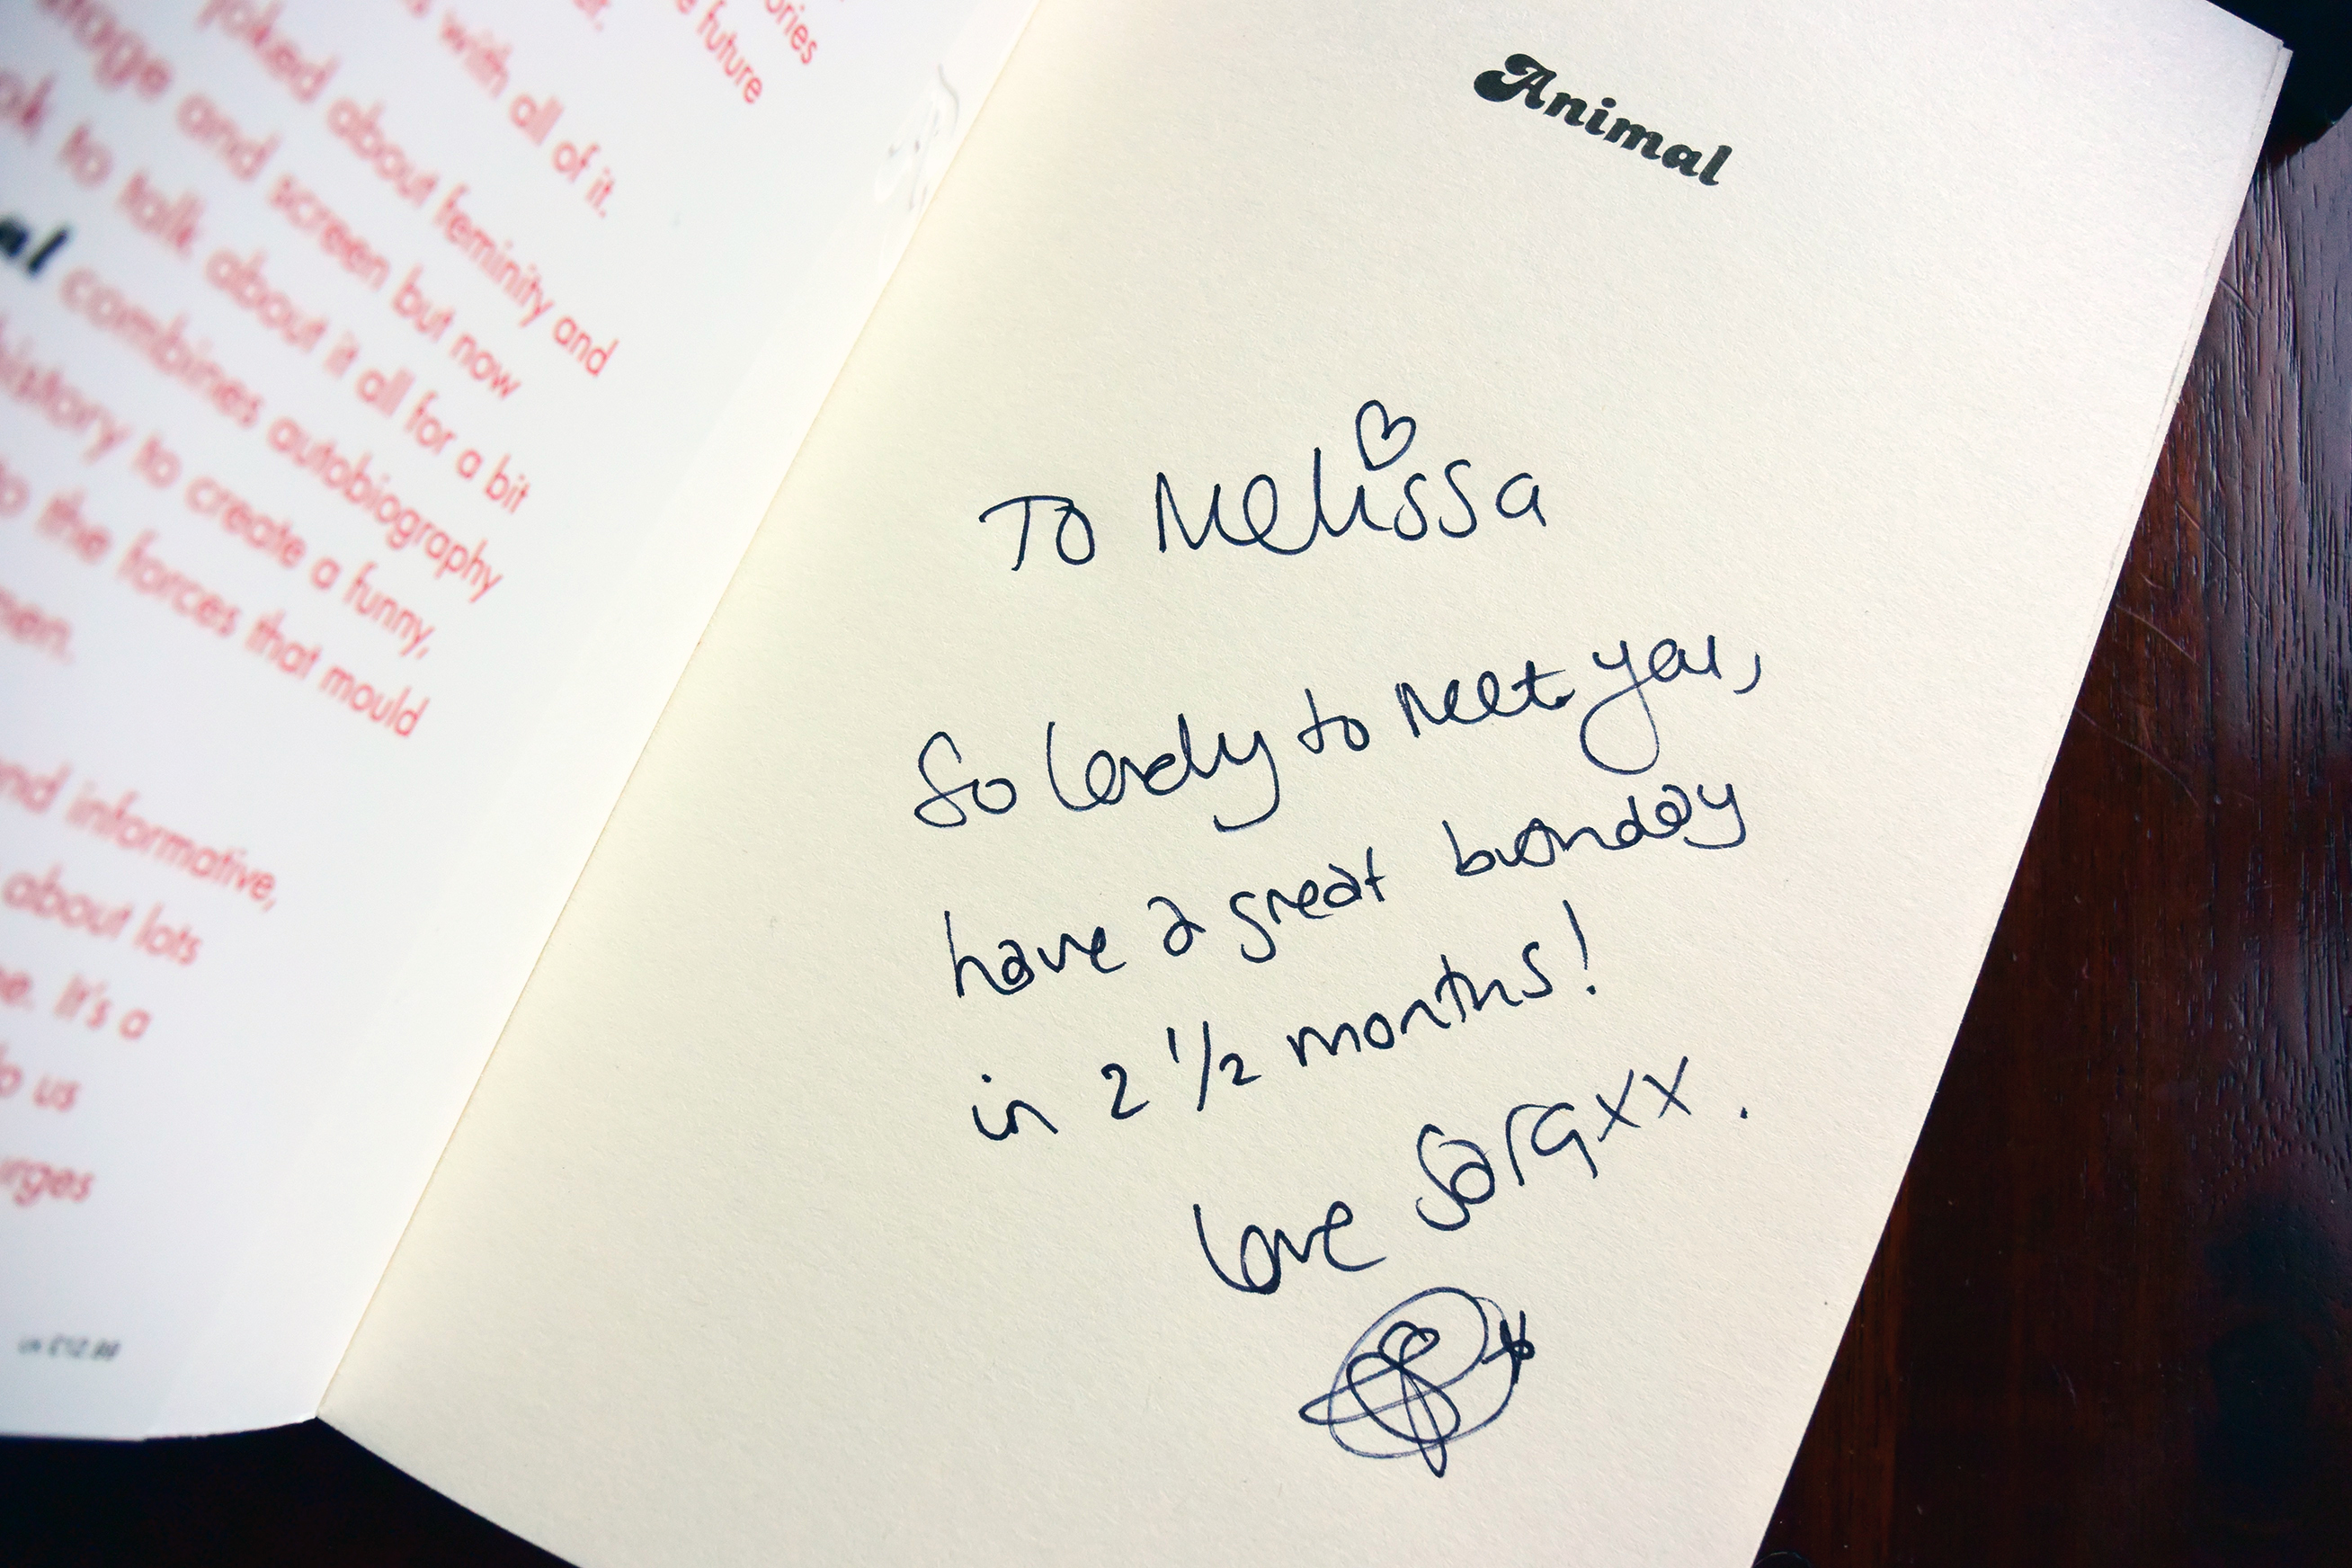 ories
e future
with all of it.
joked about feminity and
and screen but now
ok to talk about it all for a bit
al combines autobiography
history to create a funny,
to the forces that mould
men.
nd informative,
about lots
e. It's a
o us
urges
£12.99
Animal
To Melissa
So lovely to meet you,
have a great birthday
in 2 1/2 months!
love Sara xx.